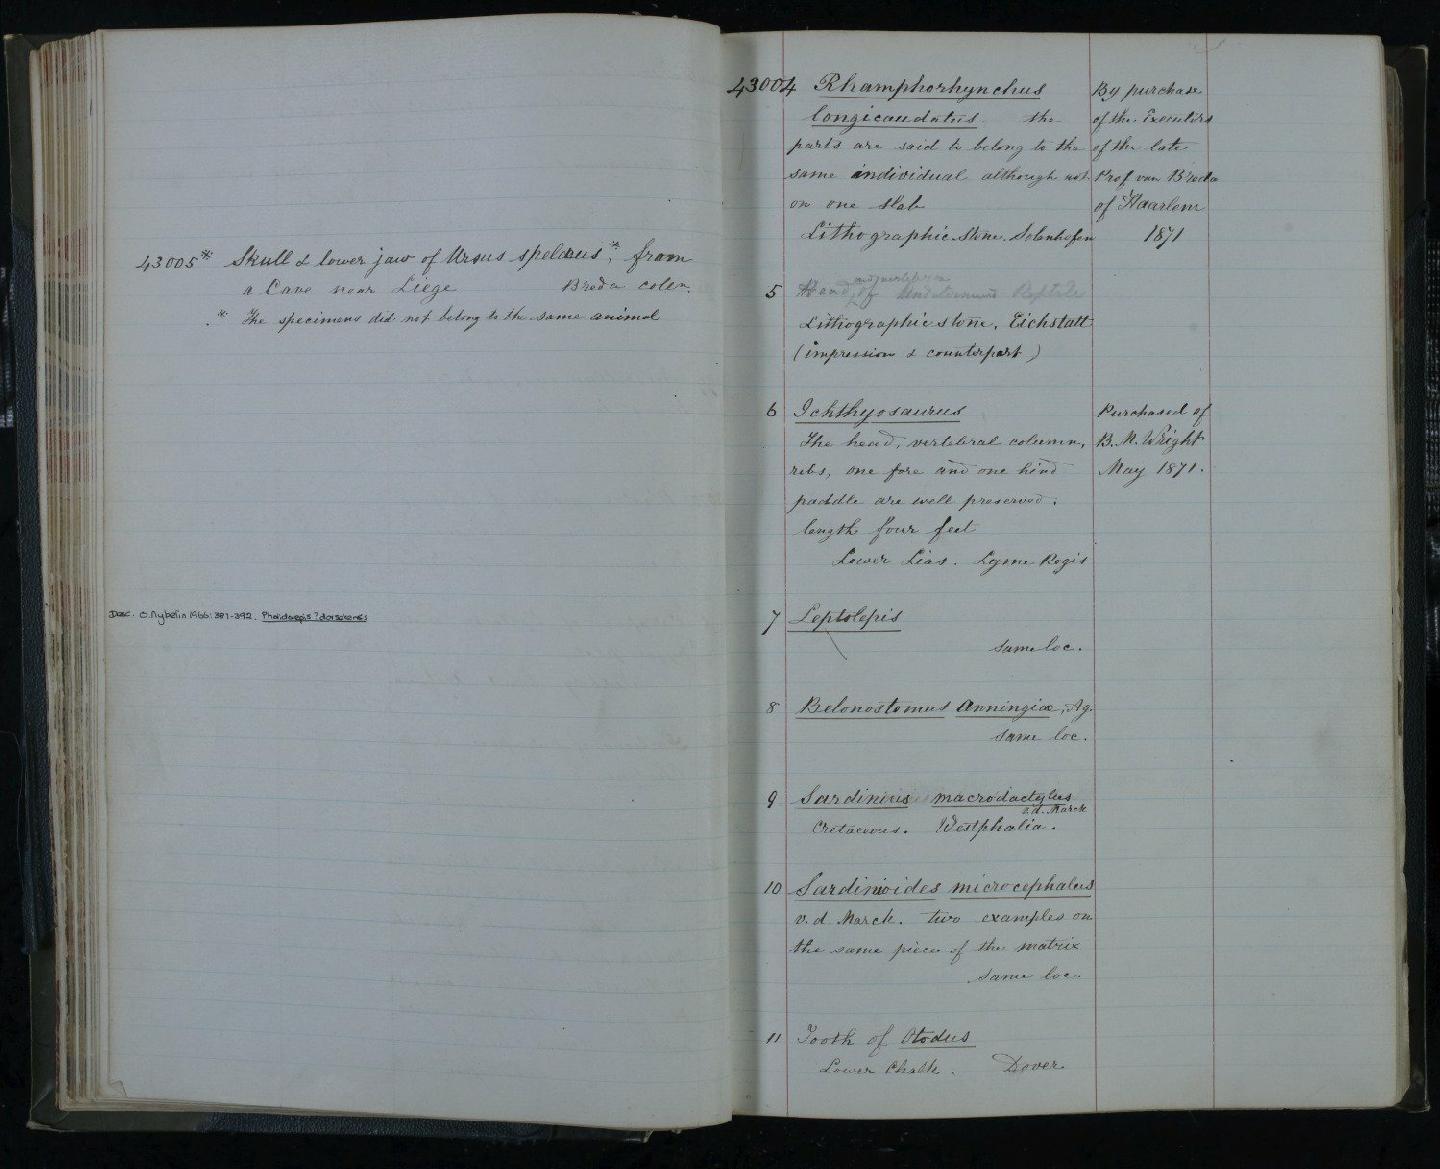 43005* Skull & lower jaw of Ursus spelæus*, from
a Cave near Liege Breda coll.
* The specimens did not belong to the same animal
Desc. O. Nybelin 1966: 387-392. Pholidolepis? dorsetensis
43004 Rhamphorhynchus
longicaudatus the
parts are said to belong to the
same individual although not
on one slab
Lithographic Stone. Solenhofen
By purchase
of the Executors
of the late
Prof van Breda
of Haarlem
1871
and vertebræ
5 Head, of Undetermined Reptile
Lithographic stone, Eichstatt
(impression & counterpart)
6 Ichthyosaurus
The head, vertebral column,
ribs, one fore and one hind
paddle are well preserved.
length four feet
Lower Lias. Lyme Regis
Purchased of
B. M. Wright
May 1871.
7 Leptolepis
same loc.
8 Belonostomus Anningiæ, Ag.
same loc.
9 Sardinius macrodactylus
v.d. Marck
Cretaceous. Westphalia.
10 Sardinioides microcephalus
v. d Marck. two examples on
the same piece of the matrix
same loc.
11 Tooth of Otodus
Lower Chalk. Dover.